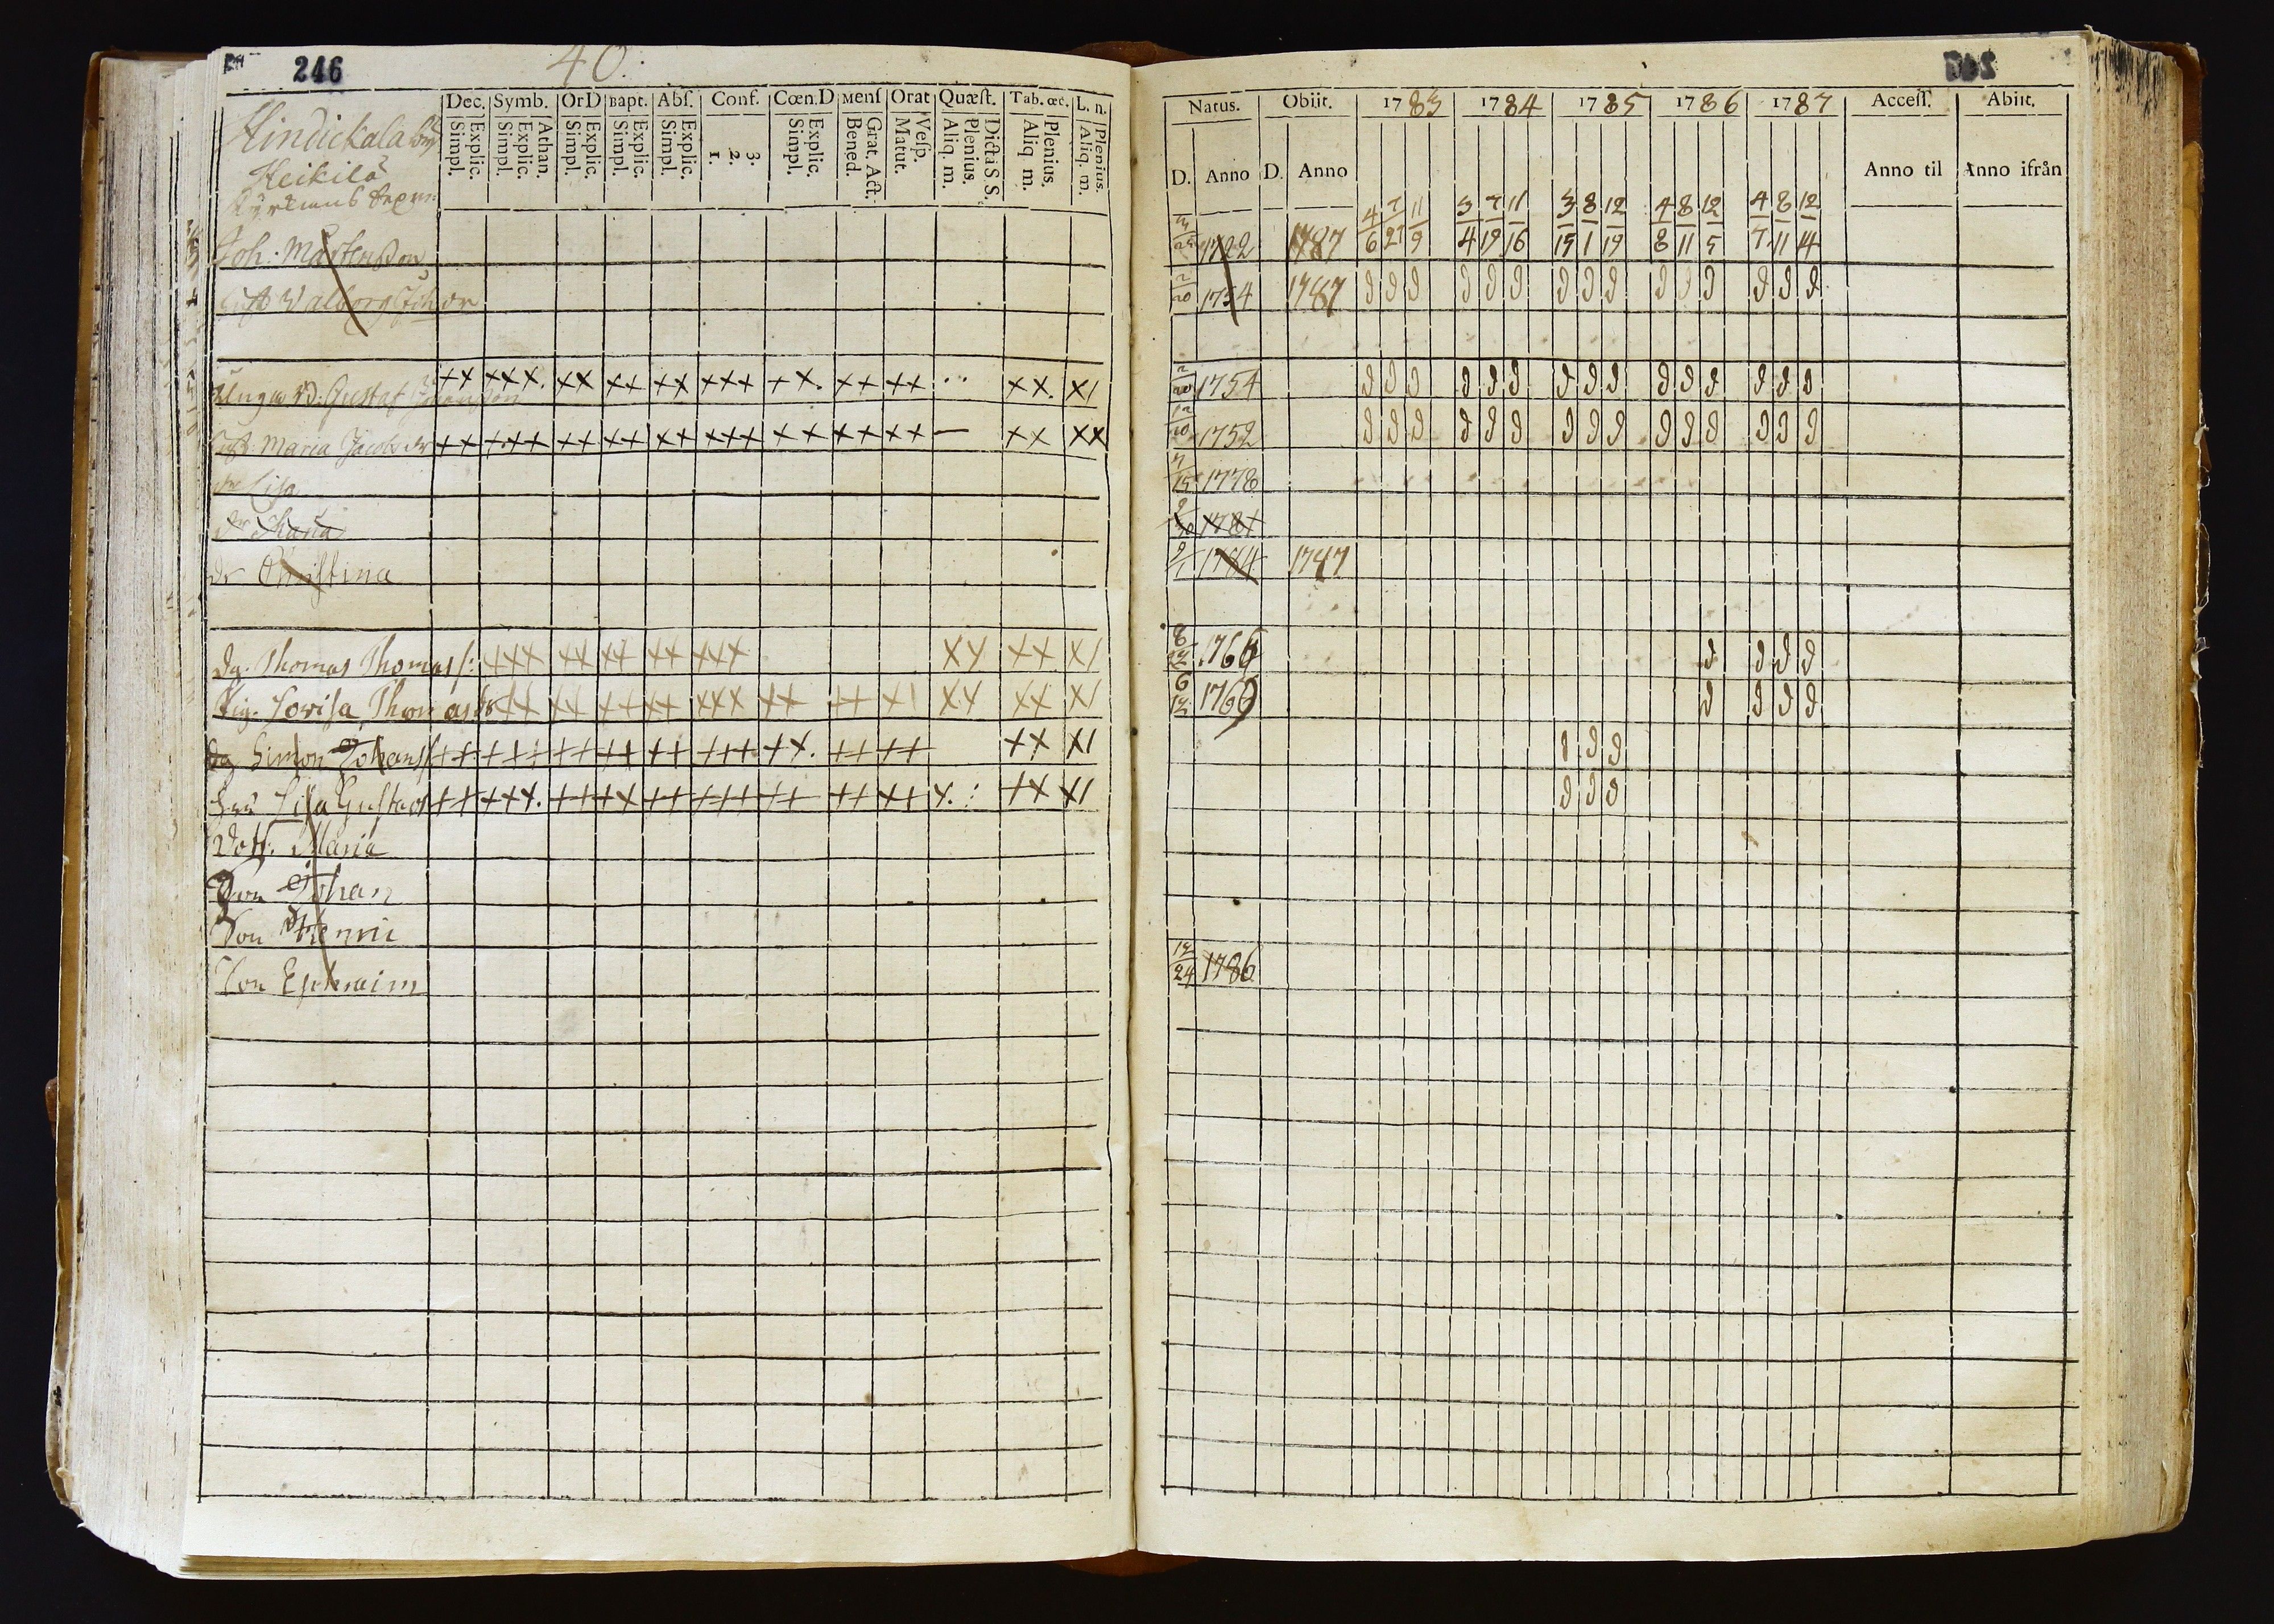 246 40.
Dec. Symb. OrD Bapt. Abſ. Conf. Cœn.D Menſ Orat Quæſt. Tab. œc. L. n.
Simpl. Explic. Simpl. Explic. Athan. Simpl. Explic. Simpl. Explic. Simpl. Explic. 1. 2. 3. Simpl. Explic. Bened. Grat. Act. Matut. Veſp. Aliq. m. Plenius. Dicta S.S. Aliq m. Plenius. Aliq. m. Plenius.
Hindickala by
Heikilä
Joh: Mårtensson
Hust Walborg
Unga Gustaf Johansson
Hust: Maria Jacobs dr
dr Lisa
dr Maria
dr Christina
dg. Thomas Thomass:
Pig. Lovisa Thomas dr
dg Simon Johanss
Hus Lisa Gustafs
Dott: Maria
Son Johan
Son Henric
Son Ephraim
Natus. Obiit. 1783 1784 1785 1786 1787 Acceſſ. Abiit.
D. Anno D. Anno Anno til Anno ifrån
4/6 7/27 11/9 3/4 7/19 11/16 3/15 8/1 12/19 4/8 8/11 12/5 4/7 8/11 12/14
1722 1787
2/20 1754 1787
2/20 1754
12/10 1752
1778
1781
1784 1747
1766
6/12 1769
12/24 1786